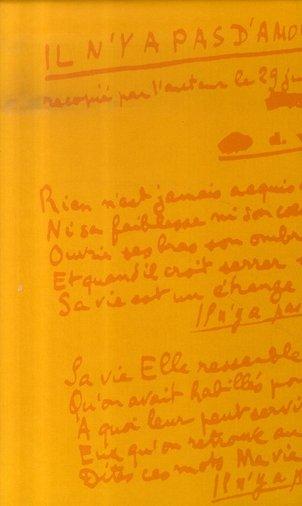 IL N'Y A PAS D'AMO
recopié par l'auteur le 29 ju
d.
Rien n'est jamais acquis
Ni sa faiblesse ni son cœ
Ouvrir ses bras son ombr
Et quand il croit serrer
Sa vie est un étrange
Il n'y a pas
Sa vie Elle ressemble
Qu'on avait habillés po
À quoi leur peut servi
Eux qu'on retrouve au
Dites ces mots Ma vie
Il n'y a p